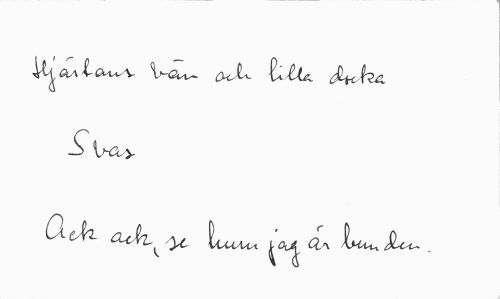 Hjärtans vän och lilla docka
Svar
Ack ack, se hum jag är bunden.